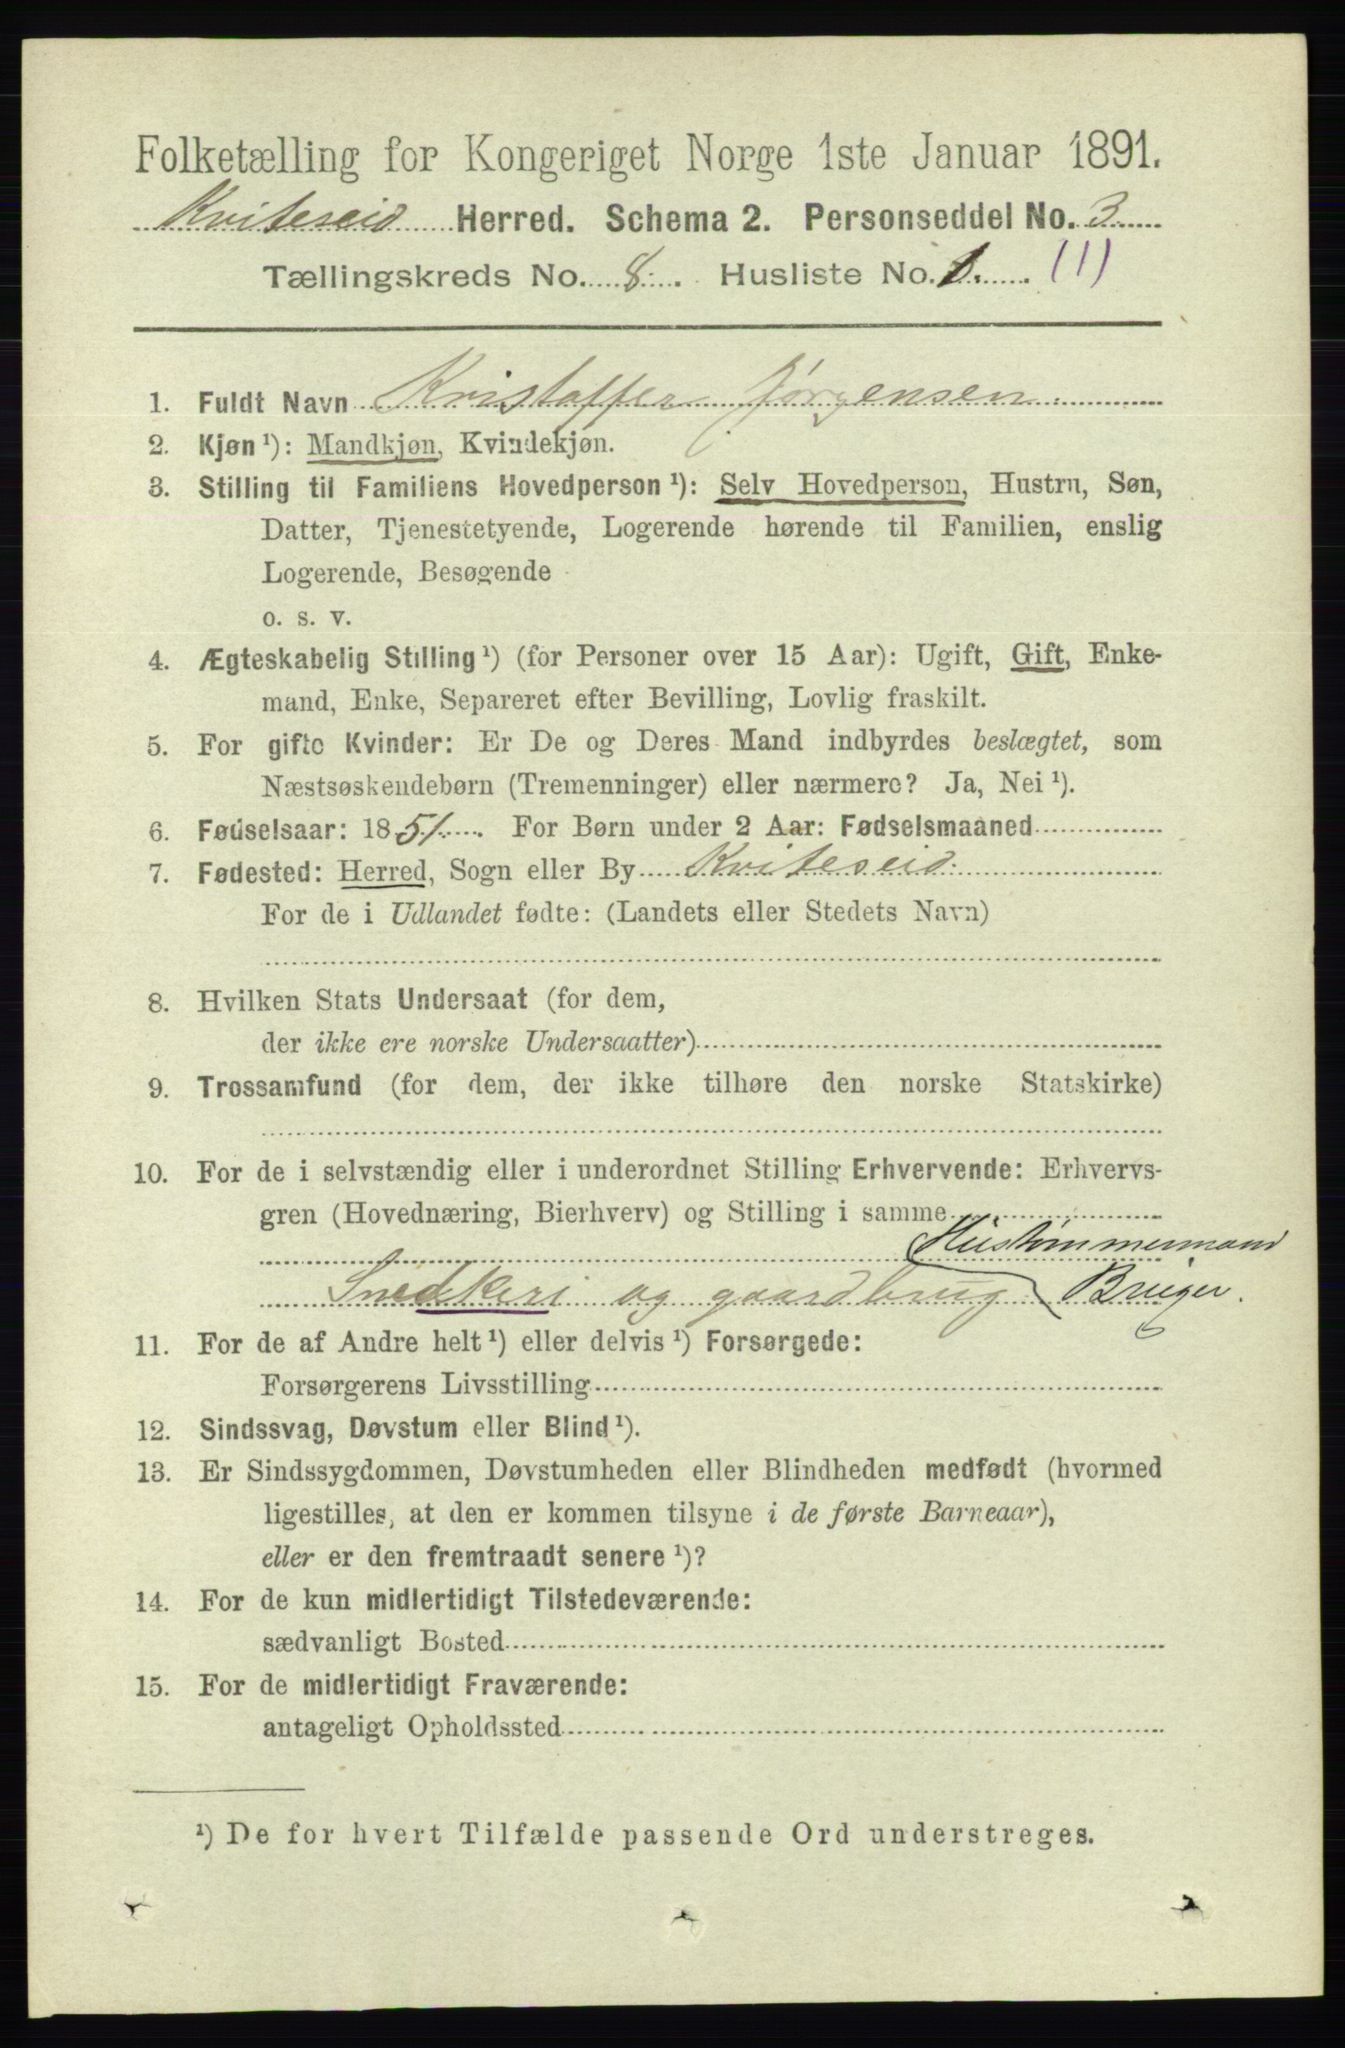 Folketælling for Kongeriget Norge 1ste Januar 1891.
Kviteseid Herred. Schema 2. Personseddel No. 3
Tællingskreds No. 8. Husliste No. 1. (1)
1. Fuldt Navn Kristoffer Jørgensen
2. Kjøn ¹): Mandkjøn, Kvindekjøn.
3. Stilling til Familiens Hovedperson ¹): Selv Hovedperson, Hustru, Søn,
Datter, Tjenestetyende, Logerende hørende til Familien, enslig
Logerende, Besøgende
o. s. v.
4. Ægteskabelig Stilling ¹) (for Personer over 15 Aar): Ugift, Gift, Enke-
mand, Enke, Separeret efter Bevilling, Lovlig fraskilt.
5. For gifte Kvinder: Er De og Deres Mand indbyrdes beslægtet, som
Næstsøskendebørn (Tremenninger) eller nærmere? Ja, Nei ¹).
6. Fødselsaar: 1851. For Børn under 2 Aar: Fødselsmaaned
7. Fødested: Herred, Sogn eller By Kviteseid.
For de i Udlandet fødte: (Landets eller Stedets Navn)
8. Hvilken Stats Undersaat (for dem,
der ikke ere norske Undersaatter)
9. Trossamfund (for dem, der ikke tilhøre den norske Statskirke)
10. For de i selvstændig eller i underordnet Stilling Erhvervende: Erhvervs-
gren (Hovednæring, Bierhverv) og Stilling i samme
Hustømmermand
Snedkeri og gaardbrug Bruger.
11. For de af Andre helt ¹) eller delvis ¹) Forsørgede:
Forsørgerens Livsstilling
12. Sindssvag, Døvstum eller Blind ¹).
13. Er Sindssygdommen, Døvstumheden eller Blindheden medfødt (hvormed
ligestilles, at den er kommen tilsyne i de første Barneaar),
eller er den fremtraadt senere ¹)?
14. For de kun midlertidigt Tilstedeværende:
sædvanligt Bosted
15. For de midlertidigt Fraværende:
antageligt Opholdssted
¹) De for hvert Tilfælde passende Ord understreges.